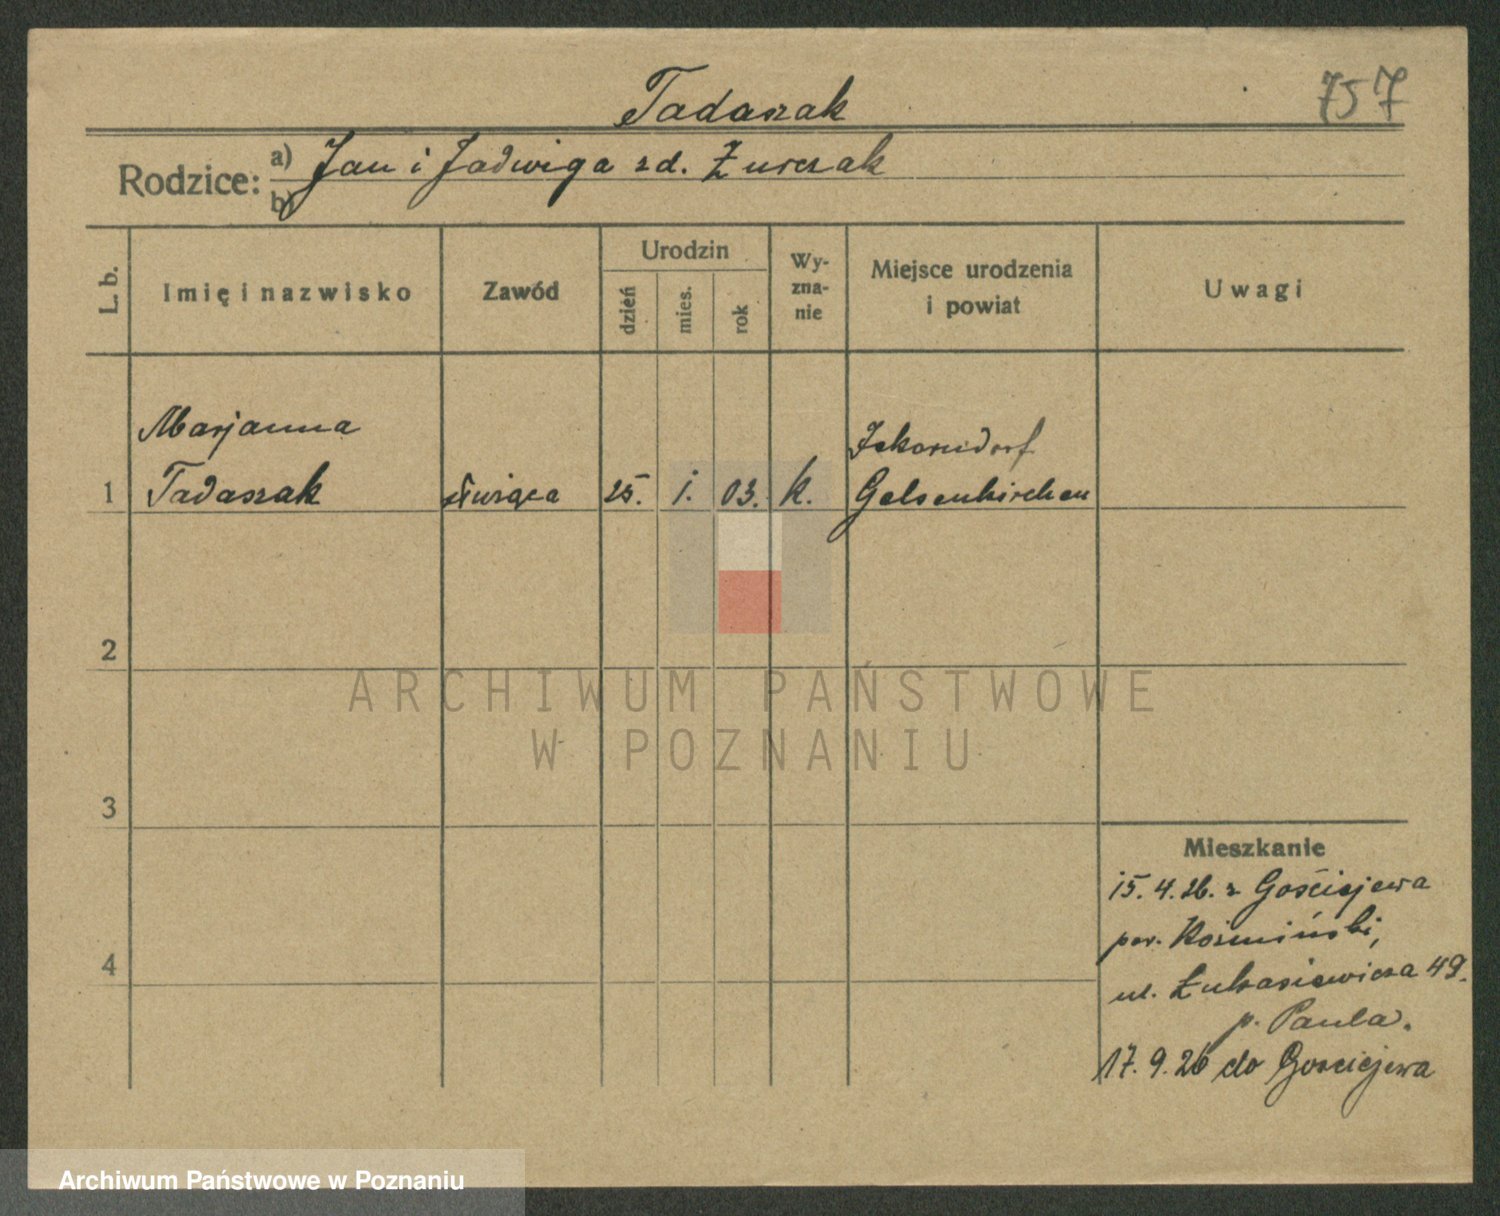 Tadaszak
757
Rodzice:
a) Jan i Jadwiga zd. Żurczak
b)
L. b.
Imię i nazwisko
Zawód
Urodzin
dzień
mies.
rok
Wy-
zna-
nie
Miejsce urodzenia
i powiat
Uwagi
Marjanna
1 Tadaszak służąca 25. i. 03. k.
Gelsenkirchen
2
3
4
ARCHIWUM PAŃSTWOWE
W POZNANIU
Mieszkanie
15. 4. 26. z Gościejewa
pow. Koźmiński,
ul. Łukasiewicza 49.
p. Paula.
17. 9. 26 do Gosciejewa
Archiwum Państwowe w Poznaniu